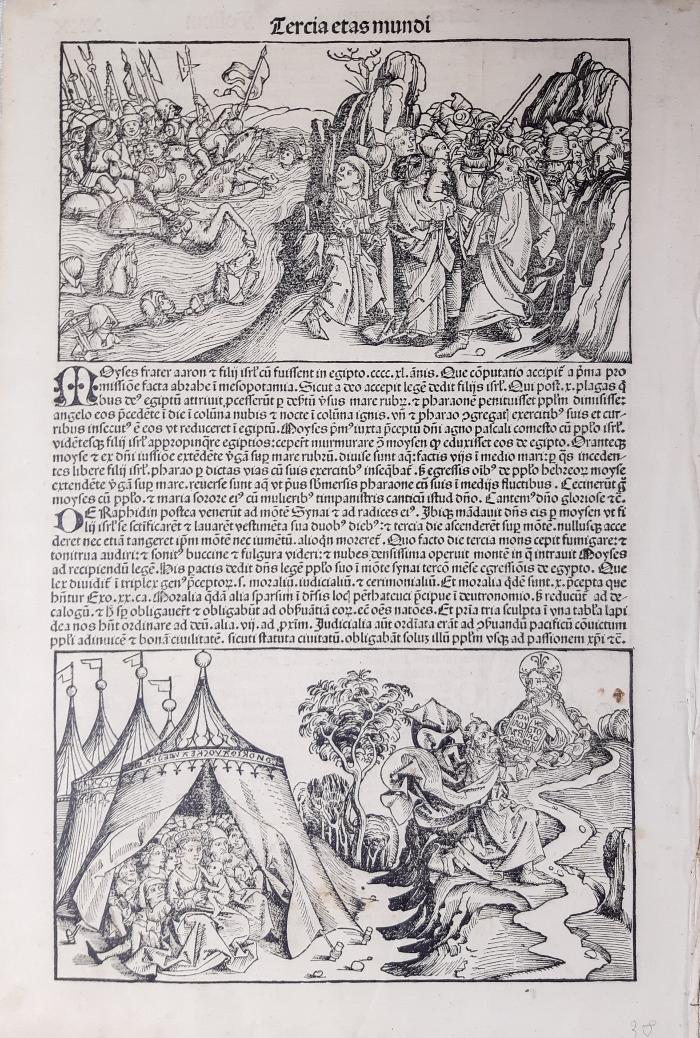 Tercia etas mundi
Moyses frater aaron ⁊ filij isrl' cū fuissent in egipto .cccc. xl. ānis. Que cōputatio accipit᷑ a p̄mia pro
missiōe facta abrahe ī mesopotamia. Sicut a deo accepit legē dedit filijs isrl'. Qui post .x. plagas q̄
bus de⁹ egiptū attriuit, ꝓcesserūt ꝑ deẜtū v̓sus mare rubꝝ. ⁊ pharaonē penituisset ppl'm dimisisse:
angelo eos p̄cedēte ī die ī colūna nubis ⁊ nocte ī colūna ignis. vn̄ ⁊ pharao ꝯgregat| exercitib⁹ suis et cur-
ribus insecut⁹ ē eos vt reduceret ī egiptū. Moyses pm̄⁹ iuxta p̄ceptū dn̄i agno pascali comesto cū pplo isrl'.
vidētesqꝫ filij isrl' appropinq̄re egiptios: ceperūt murmurare ꝯ̄ moysen qꝫ eduxisset eos de egipto. Oranteqꝫ
moyse ⁊ ex dn̄i iussiōe extēdēte v̓gā suꝑ mare rubrū. diuise sunt aq̄: factis vijs ī medio mari: ꝑ q̄s inceden-
tes libere filij isrl'. pharao ꝑ dictas vias cū suis exercitib⁹ inseq̄bat᷑. ẜ egressis oib⁹ de pplo hebreoꝝ moyse
extendēte v̓gā suꝑ mare. reuerse sunt aq̄ vt pus sbmersis pharaone cū suis ī medijs fluctibus. Cecinerūt g̊
moyses cū pplo. ⁊ maria sorore ei⁹ cū mulierib⁹ timpanistris canticū istud dn̄o. Cantem⁹ dn̄o gloriose ⁊c̄.
DE Raphidin postea venerūt ad mōtē Synai ⁊ ad radices ei⁹. Ibiqꝫ mādauit dn̄s eis ꝑ moysen vt fi
lij isrl' se sctificarēt ⁊ lauarēt vestimēta sua duob⁹ dieb⁹: ⁊ tercia die ascenderēt suꝑ mōtē. nullusqꝫ acce
deret nec etiā tangeret ip̄m mōtē nec iumētū. alioq̄n moreret᷑. Quo facto die tercia mons cepit fumigare: ⁊
tonitrua audiri: ⁊ sonit⁹ buccine ⁊ fulgura videri: ⁊ nubes densissima operuit montē in q̊ intrauit Moyses
ad recipiendū legē. His ꝑactis dedit dn̄s legē pplo suo ī mōte synai tercō mēse egressiōis de egypto. Que
lex diuidit᷑ ī triplex gen⁹ p̄ceptoꝝ. s. moraliū. iudicialiū. ⁊ cerimonialiū. Et moralia q̄dē sunt .x. p̄cepta que
hn̄tur Exo. xx. ca. Moralia q̄dā alia sparsim ī dr̄sis loc| pēthateuci p̄cipue ī deutronomio. ẜ reducūt᷑ ad de-
calogū. ⁊ h̄ sp obligauer̄t ⁊ obligabūt ad obẜuātiā eoꝝ. eē oēs natōes. Et p̄ria tria sculpta ī vna tabl'a lapi
dea nos hn̄t ordinare ad deū. alia .vij. ad ꝓxim̄. Judicialia aūt ordīata erāt ad ꝯẜuandū pacificū cōuictum
ppl'i adinuicē ⁊ bonā ciuilitatē. sicuti statuta ciuitatū. obligabāt solū illū ppl'm vsqꝫ ad passionem xp̄i ⁊c̄.
38